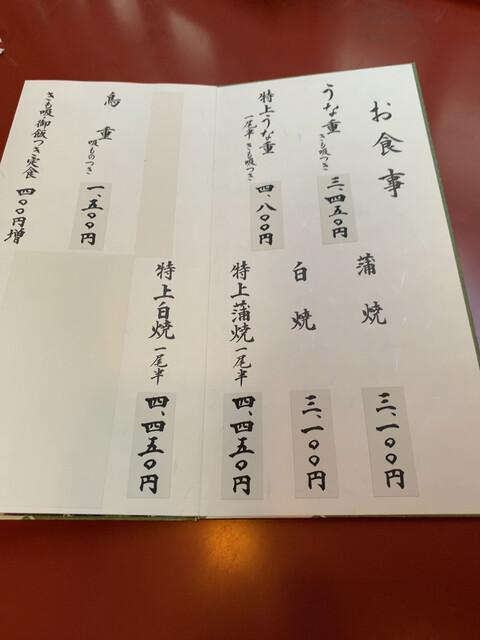 お食事
うな重 きも吸つき 三、四五〇円
特上うな重 一尾半 きも吸つき 四、八〇〇円
鳥重 吸ものつき 一、五〇〇円
きも吸御飯つき定食 四〇〇円増
蒲焼 三、一〇〇円
白焼 三、一〇〇円
特上蒲焼 一尾半 四、四五〇円
特上白焼 一尾半 四、四五〇円